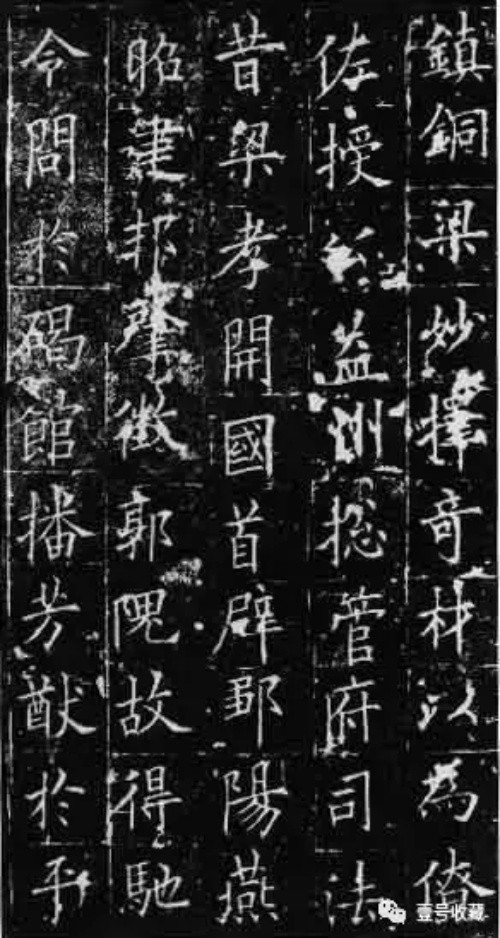 鎮銅梁妙擇奇材以為僚
佐授公益州捴管府司法
昔梁孝開國首辟鄒陽燕
昭建邦肇徵郭隗故得馳
令問於碣館播芳猷於平
壹号收藏